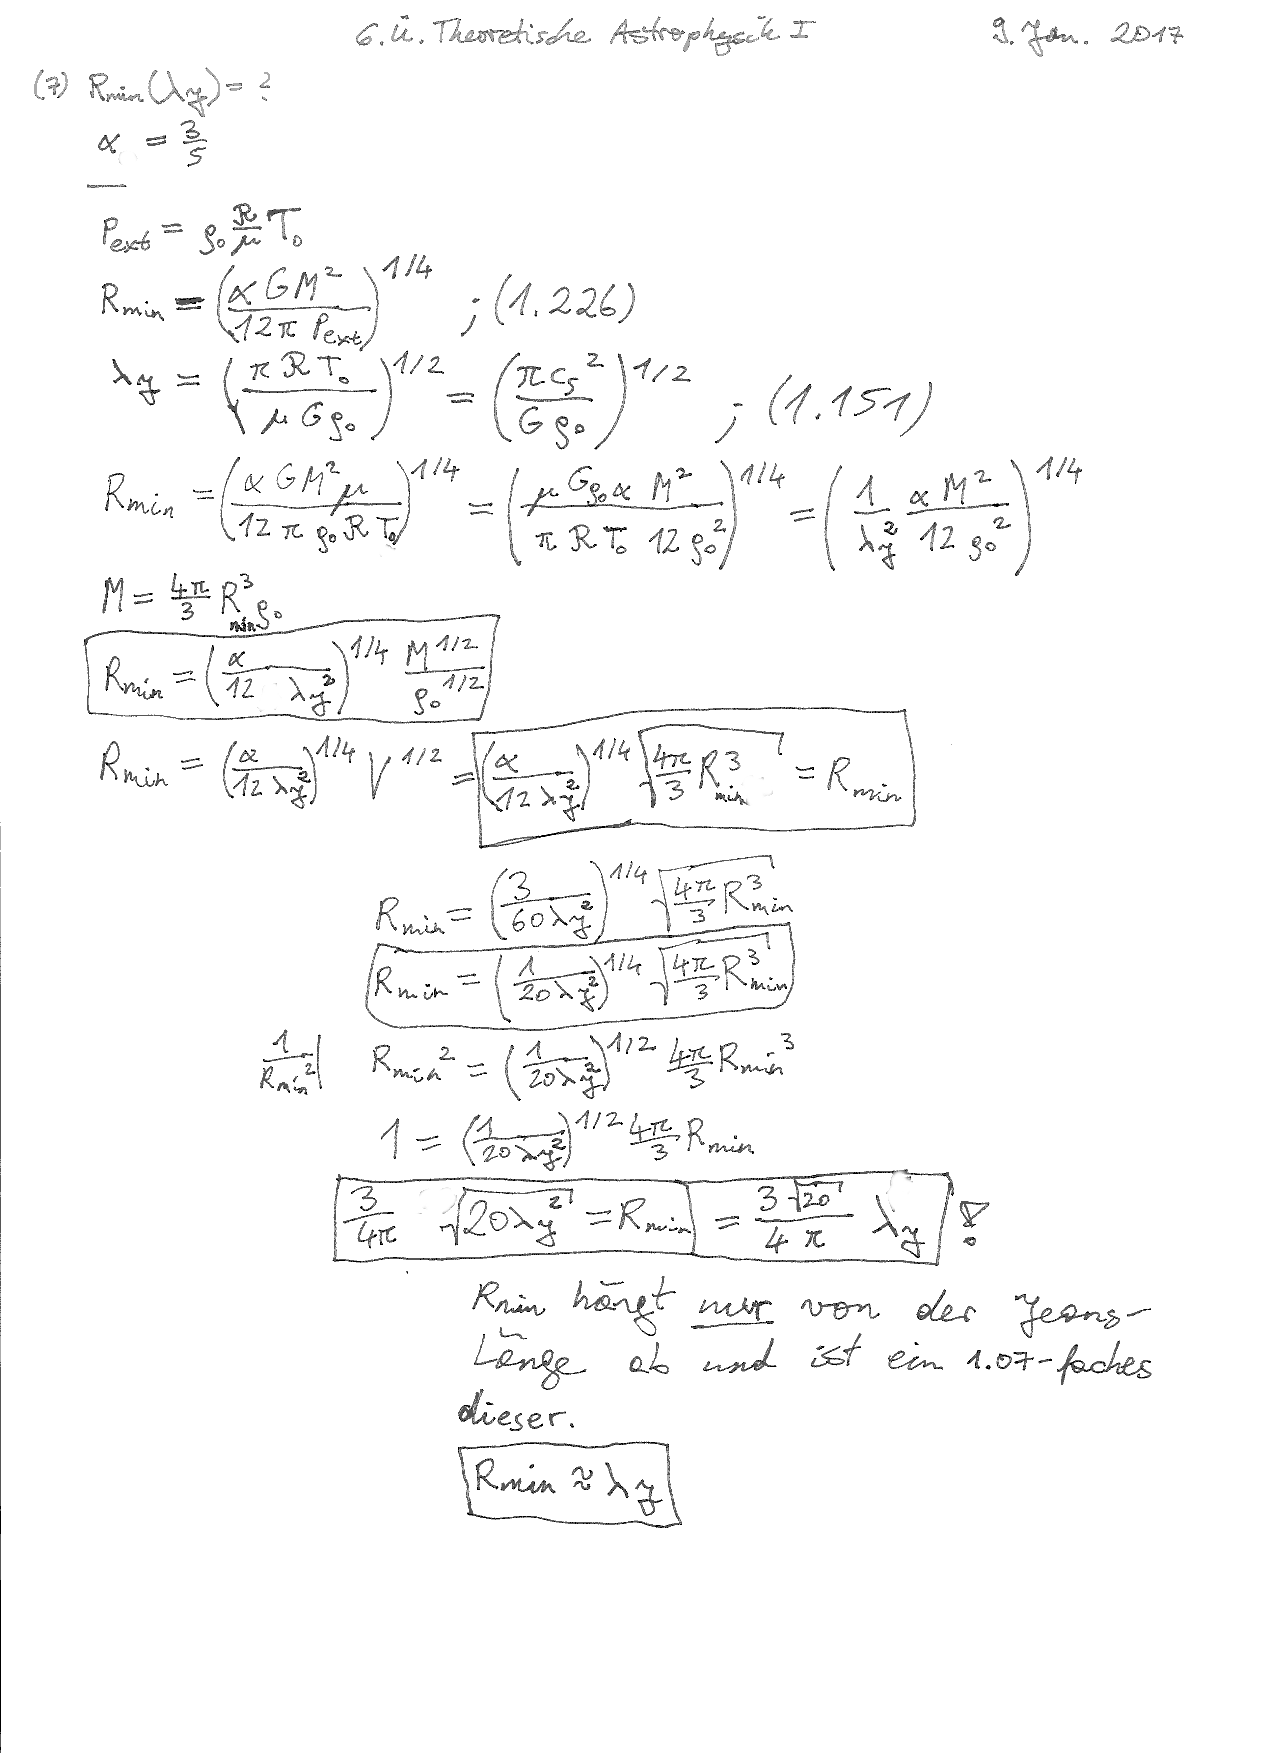 6. Ü. Theoretische Astrophysik I 9. Jan. 2017
(7) R_min(λ_J) = ?
α = 3/5
P_ext = ρ₀ ℛ/μ T₀
R_min = (α G M² / 12π P_ext)^1/4 ; (1.226)
λ_J = (π ℛ T₀ / μ G ρ₀)^1/2 = (π c_s² / G ρ₀)^1/2 ; (1.151)
R_min = (α G M² μ / 12 π ρ₀ ℛ T₀)^1/4 = (μ G ρ₀ α M² / π ℛ T₀ 12 ρ₀²)^1/4 = (1/λ_J² α M² / 12 ρ₀²)^1/4
M = 4π/3 R_min³ ρ₀
R_min = (α / 12 λ_J²)^1/4 M^1/2 / ρ₀^1/2
R_min = (α / 12 λ_J²)^1/4 V^1/2 = (α / 12 λ_J²)^1/4 √(4π/3 R_min³) = R_min
R_min = (3 / 60 λ_J²)^1/4 √(4π/3 R_min³)
R_min = (1 / 20 λ_J²)^1/4 √(4π/3 R_min³)
1/R_min² | R_min² = (1 / 20 λ_J²)^1/2 4π/3 R_min³
1 = (1 / 20 λ_J²)^1/2 4π/3 R_min
3/4π √(20 λ_J²) = R_min = 3√20 / 4π λ_J !
R_min hängt nur von der Jeans-
Länge ab und ist ein 1.07-faches
dieser.
R_min ≈ λ_J